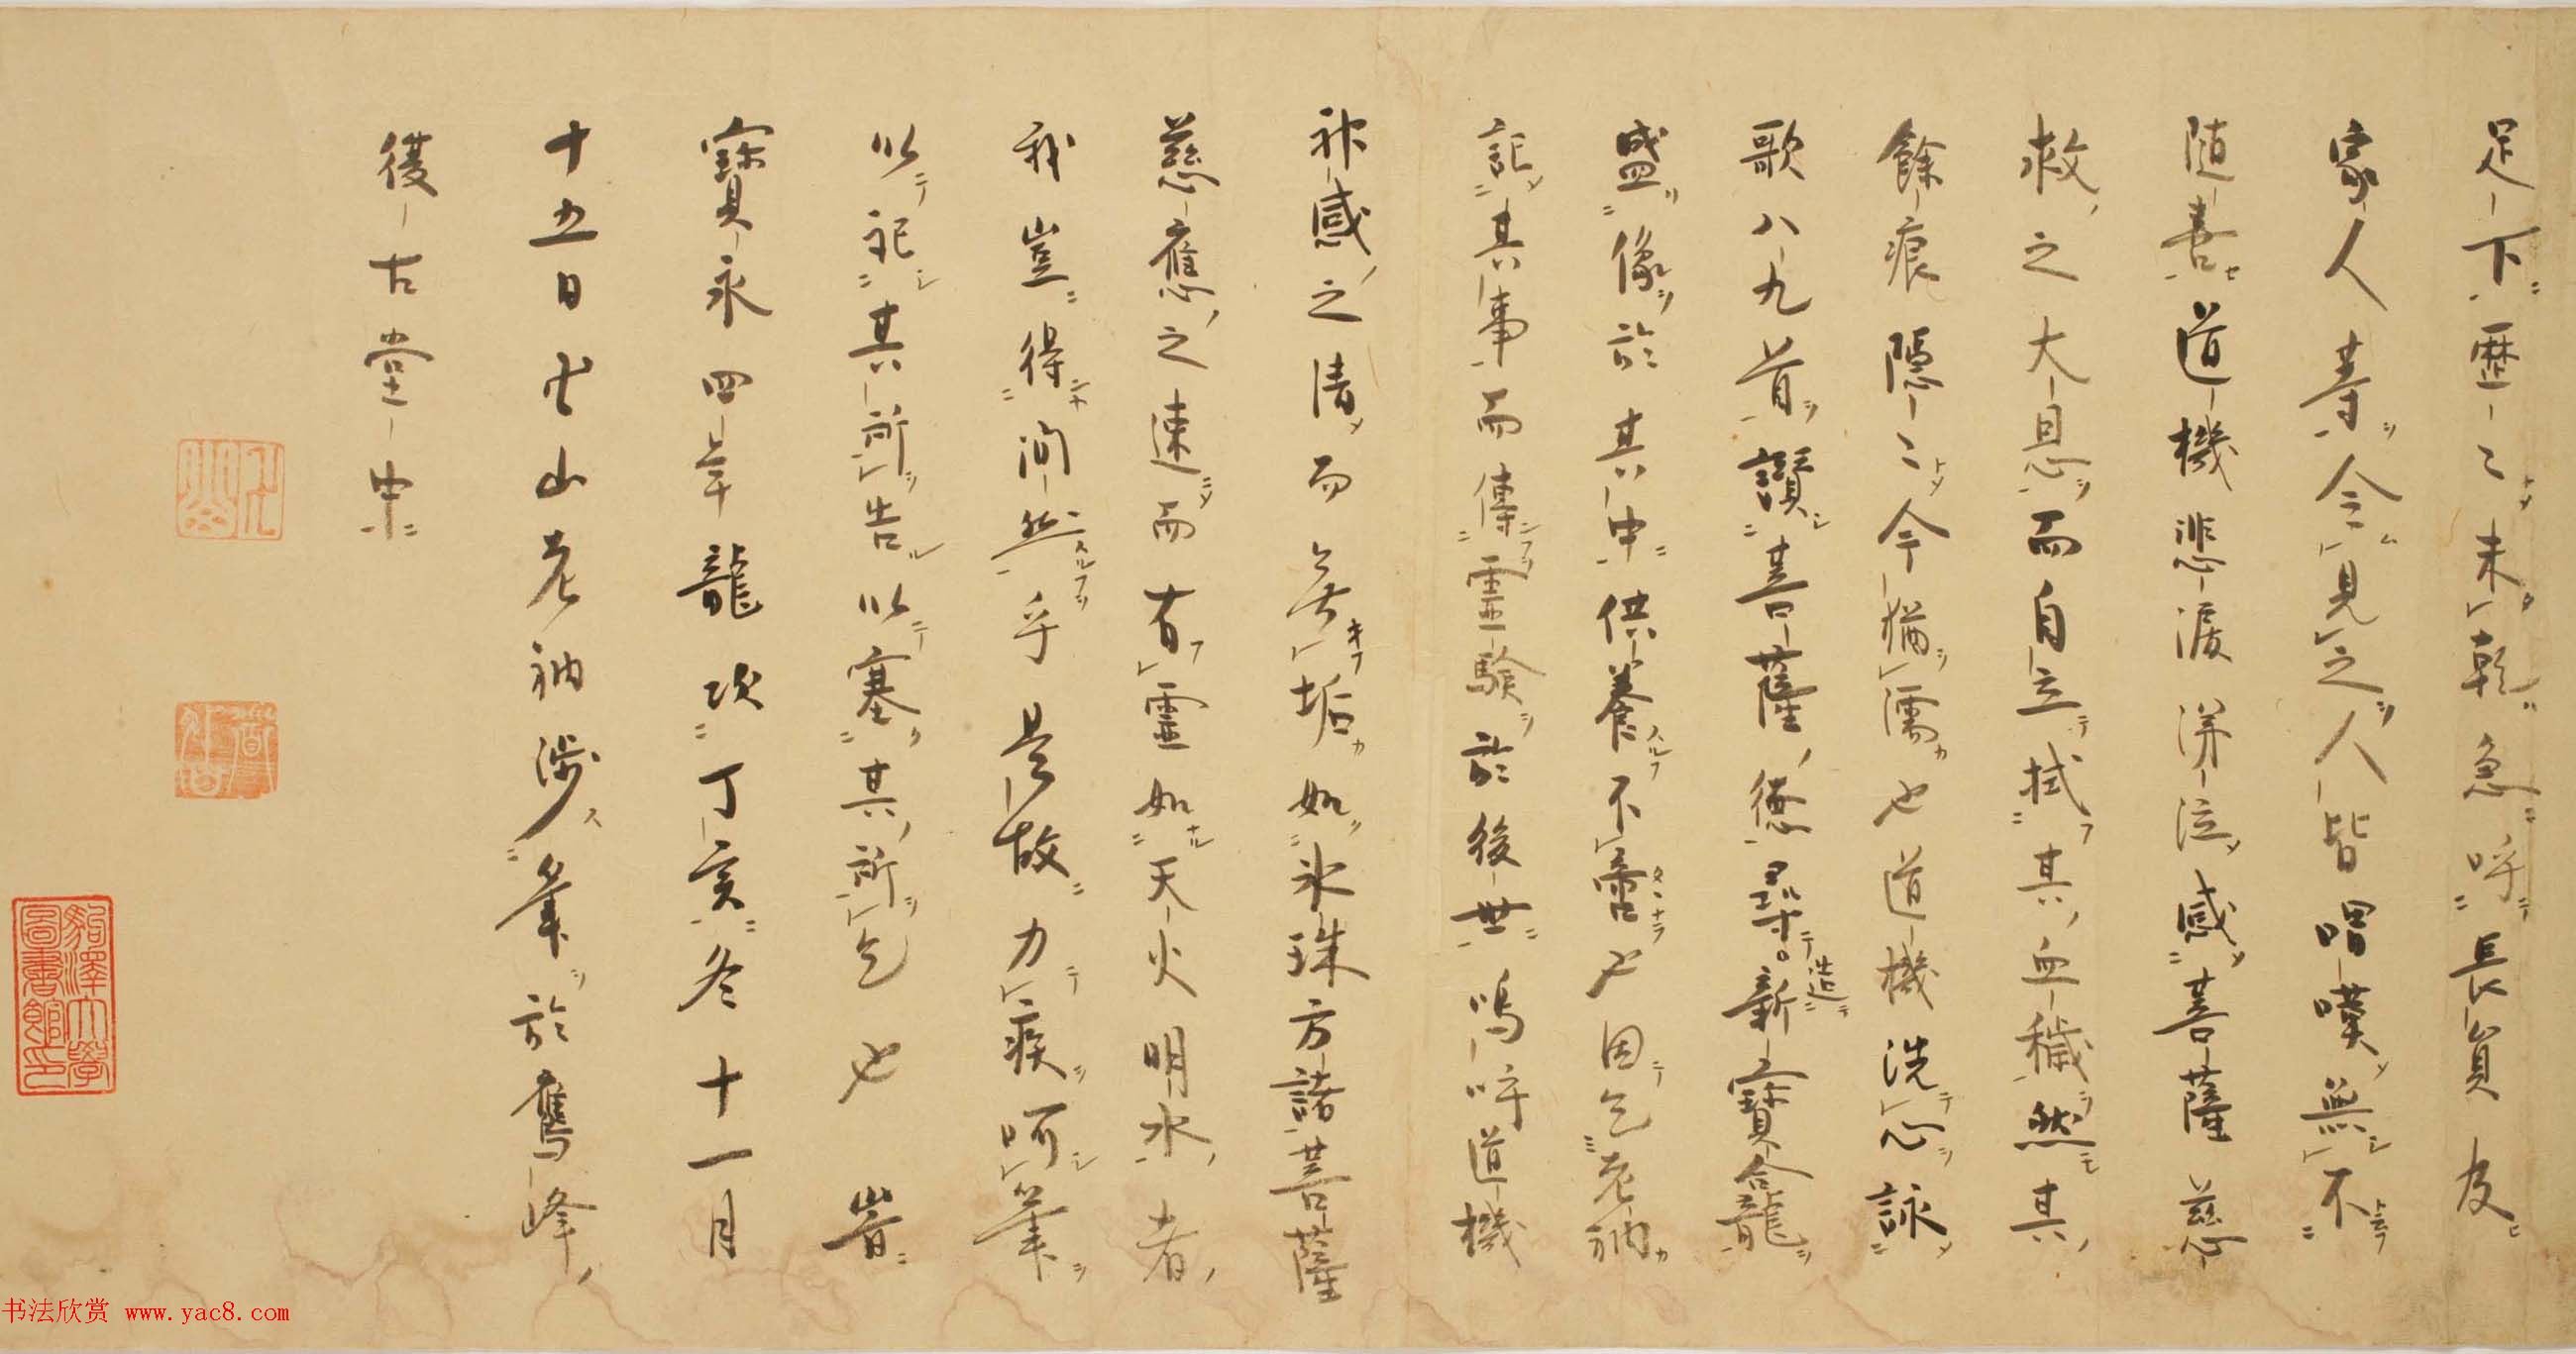 足下歴〻未乾急呼長員及
家人寺令見之人皆唱嘆無不
随喜道機悲涙洴泣感菩薩慈
救之大恩而自立拭其血穢然其
餘痕隠〻今猶濡也道機洗心詠
歌八九首讃菩薩德尋新造寳龕
盛像於其中供養不啻也因乞老衲
記其事而傳靈驗於後世嗚呼道機
神感之清而無垢如氷珠方諸菩薩
慈應之速而有靈如天火明水者
我豈得間然乎是故力疾呵筆
以記其所告以塞其所乞也 峕
寳永四年龍次丁亥冬十一月
十五日卍山老衲渉筆於鷹峰
復古堂中
卍山
道白
駒澤大學圖書館印
书法欣赏 www.yac8.com